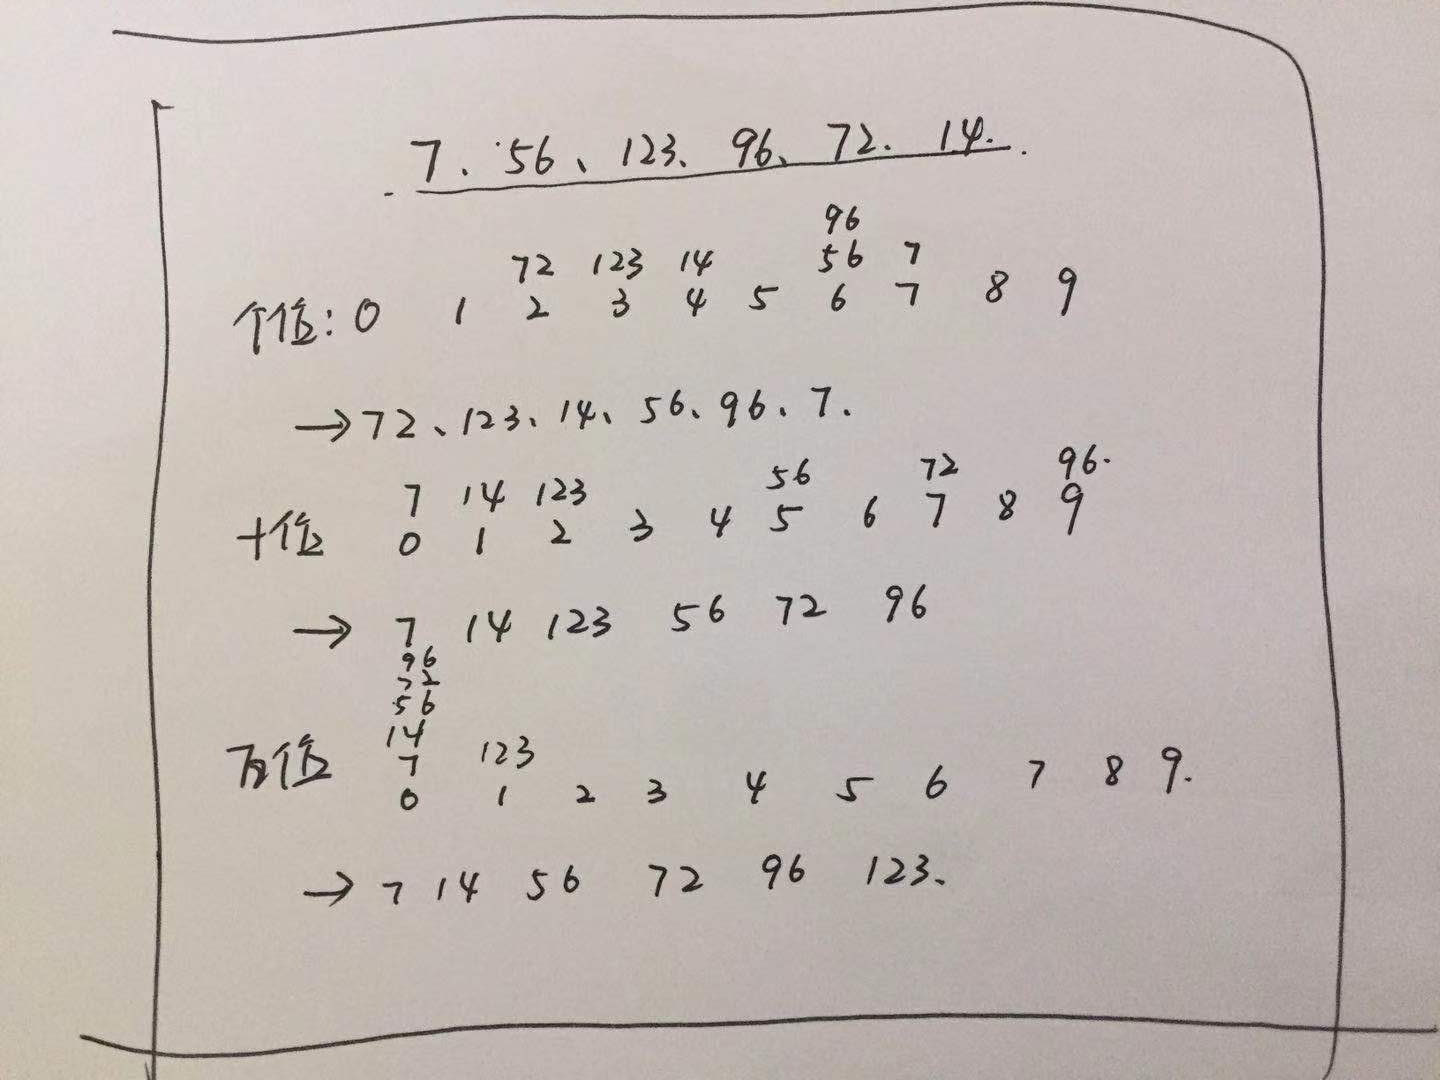 7、56、123、96、72、14.
96
72 123 14 56 7
个值: 0 1 2 3 4 5 6 7 8 9
→72、123、14、56、96、7.
7 14 123 56 72 96.
十值 0 1 2 3 4 5 6 7 8 9
→ 7 14 123 56 72 96
96
72
56
14
7 123
百值 0 1 2 3 4 5 6 7 8 9.
→ 7 14 56 72 96 123、